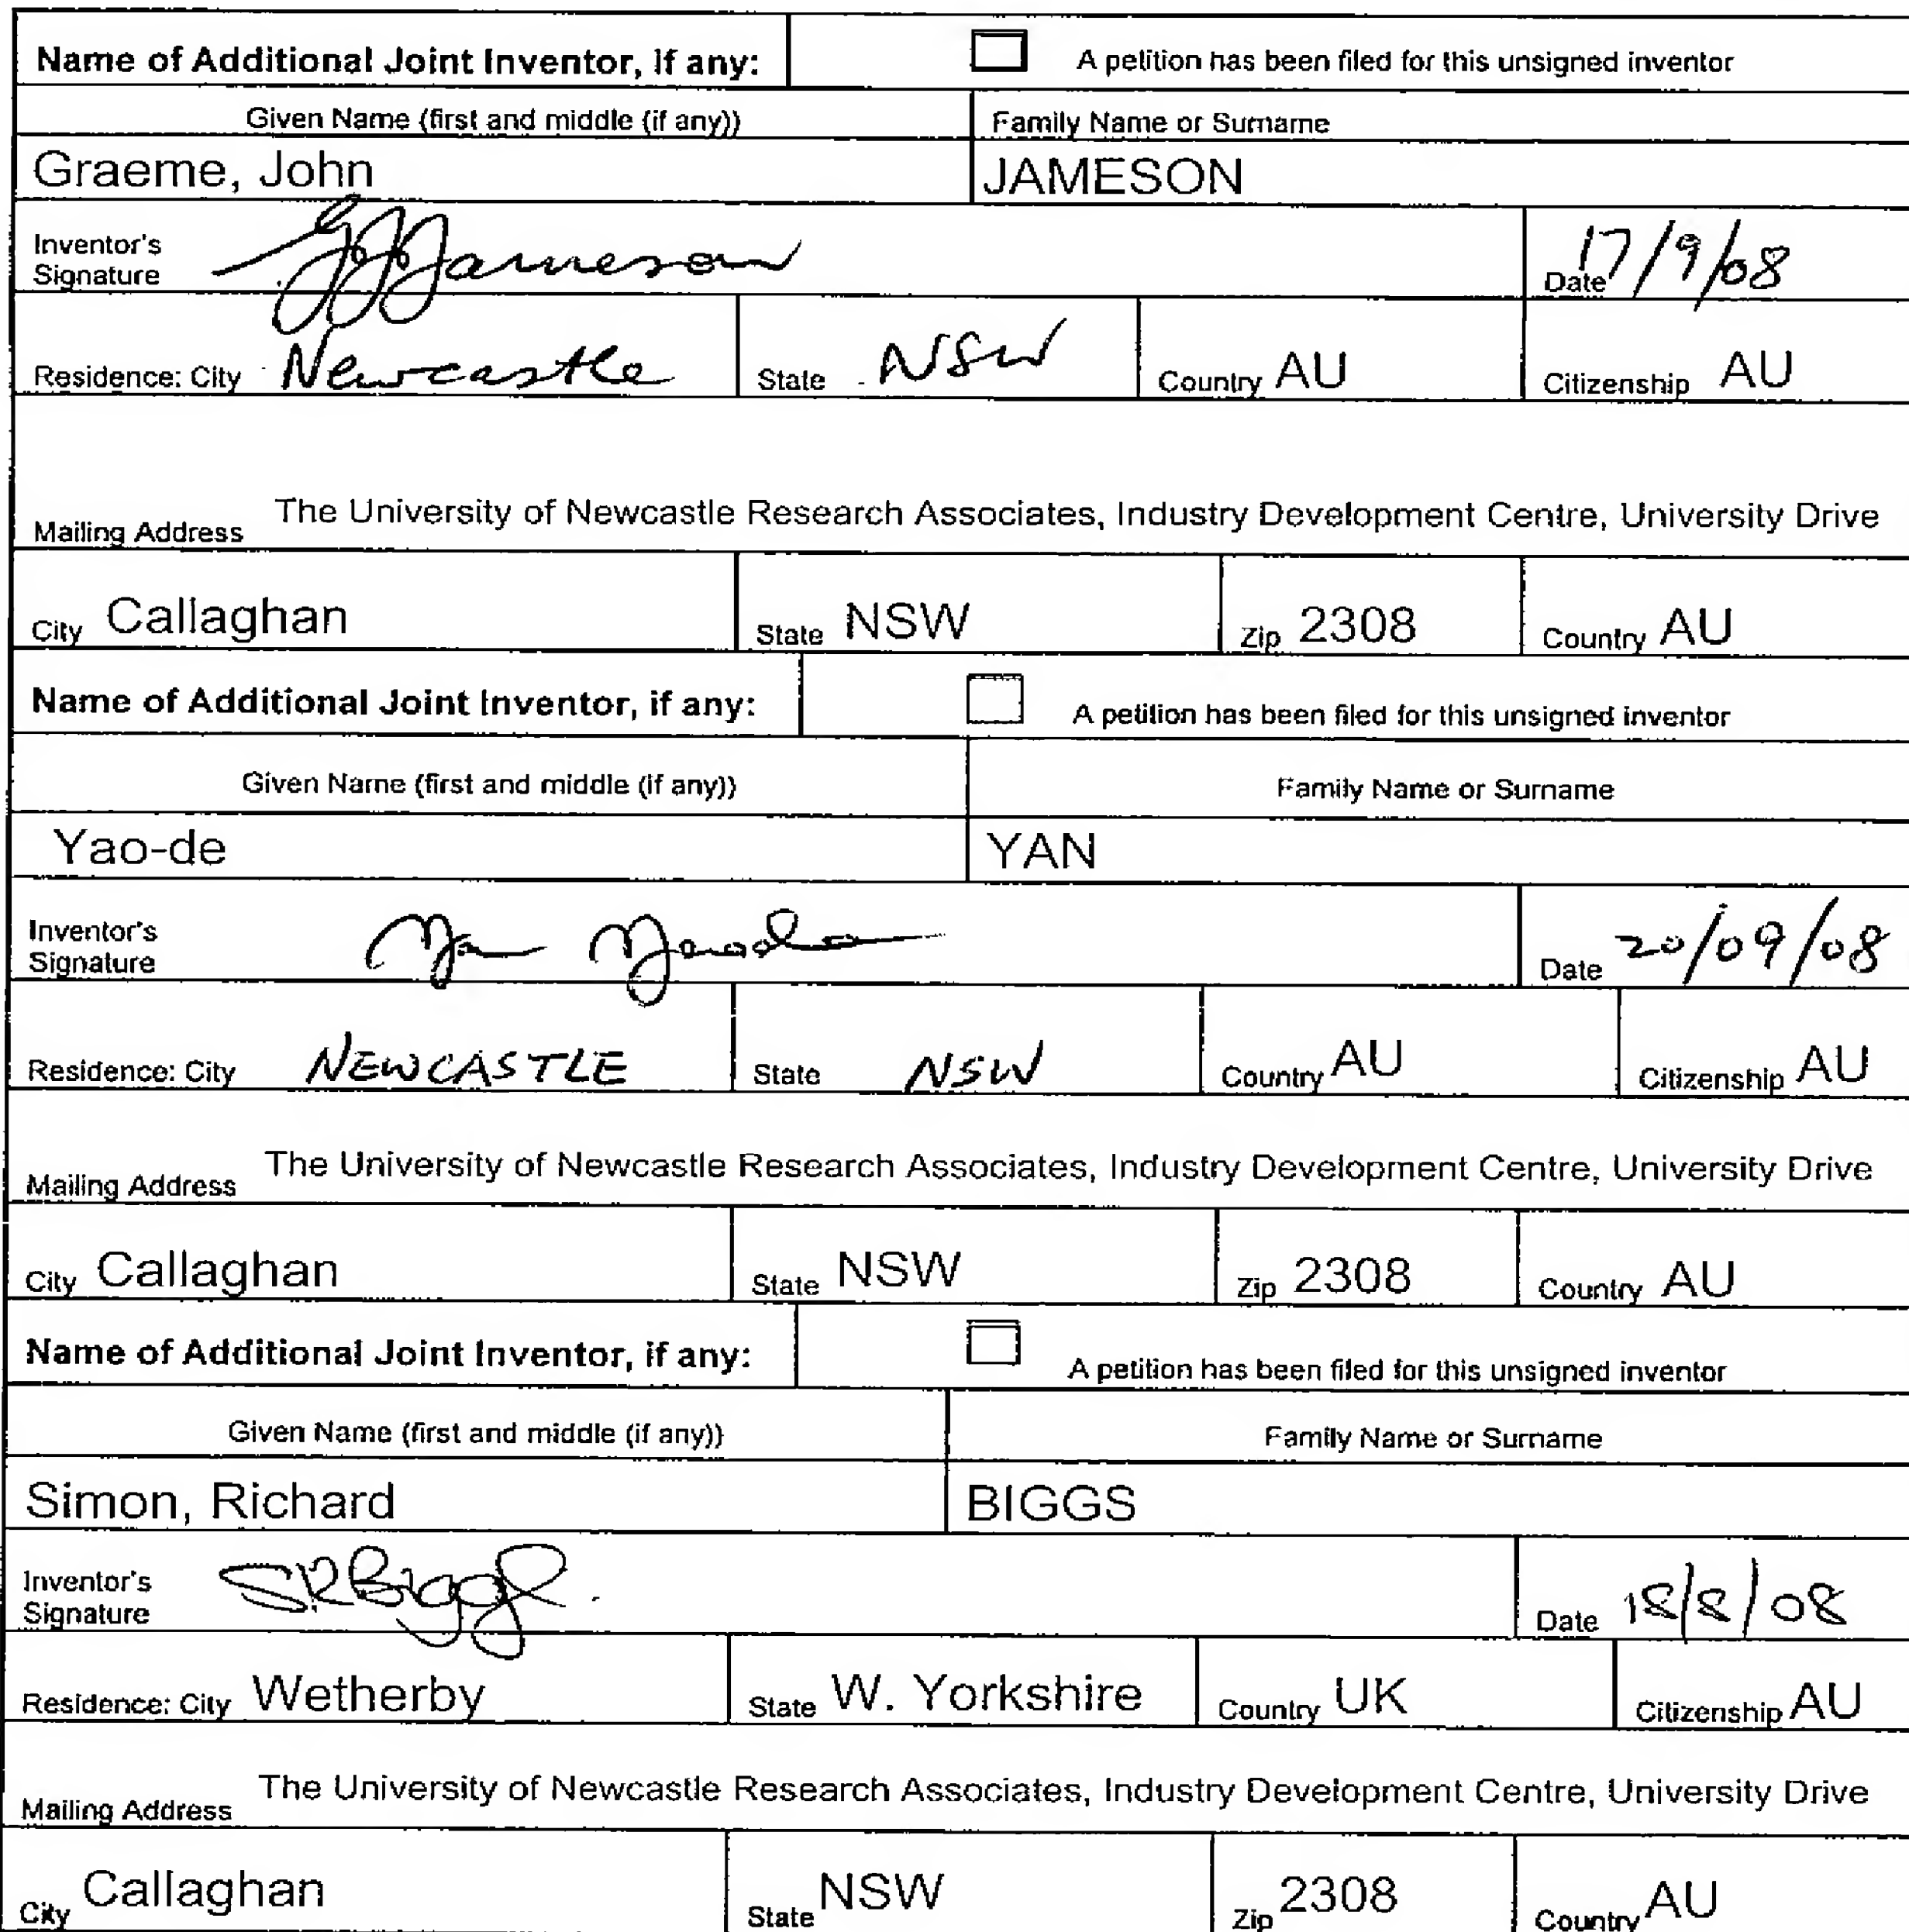 Name of Additional Joint Inventor, if any: A petition has been filed for this unsigned inventor
Given Name (first and middle (if any)) Family Name or Surname
Graeme, John JAMESON
Inventor's Signature GJJameson Date 17/9/08
Residence: City Newcastle State NSW Country AU Citizenship AU
Mailing Address The University of Newcastle Research Associates, Industry Development Centre, University Drive
City Callaghan State NSW Zip 2308 Country AU
Name of Additional Joint Inventor, if any: A petition has been filed for this unsigned inventor
Given Name (first and middle (if any)) Family Name or Surname
Yao-de YAN
Inventor's Signature Date 20/09/08
Residence: City NEWCASTLE State NSW Country AU Citizenship AU
Mailing Address The University of Newcastle Research Associates, Industry Development Centre, University Drive
City Callaghan State NSW Zip 2308 Country AU
Name of Additional Joint Inventor, if any: A petition has been filed for this unsigned inventor
Given Name (first and middle (if any)) Family Name or Surname
Simon, Richard BIGGS
Inventor's Signature SRBiggs Date 18/8/08
Residence: City Wetherby State W. Yorkshire Country UK Citizenship AU
Mailing Address The University of Newcastle Research Associates, Industry Development Centre, University Drive
City Callaghan State NSW Zip 2308 Country AU